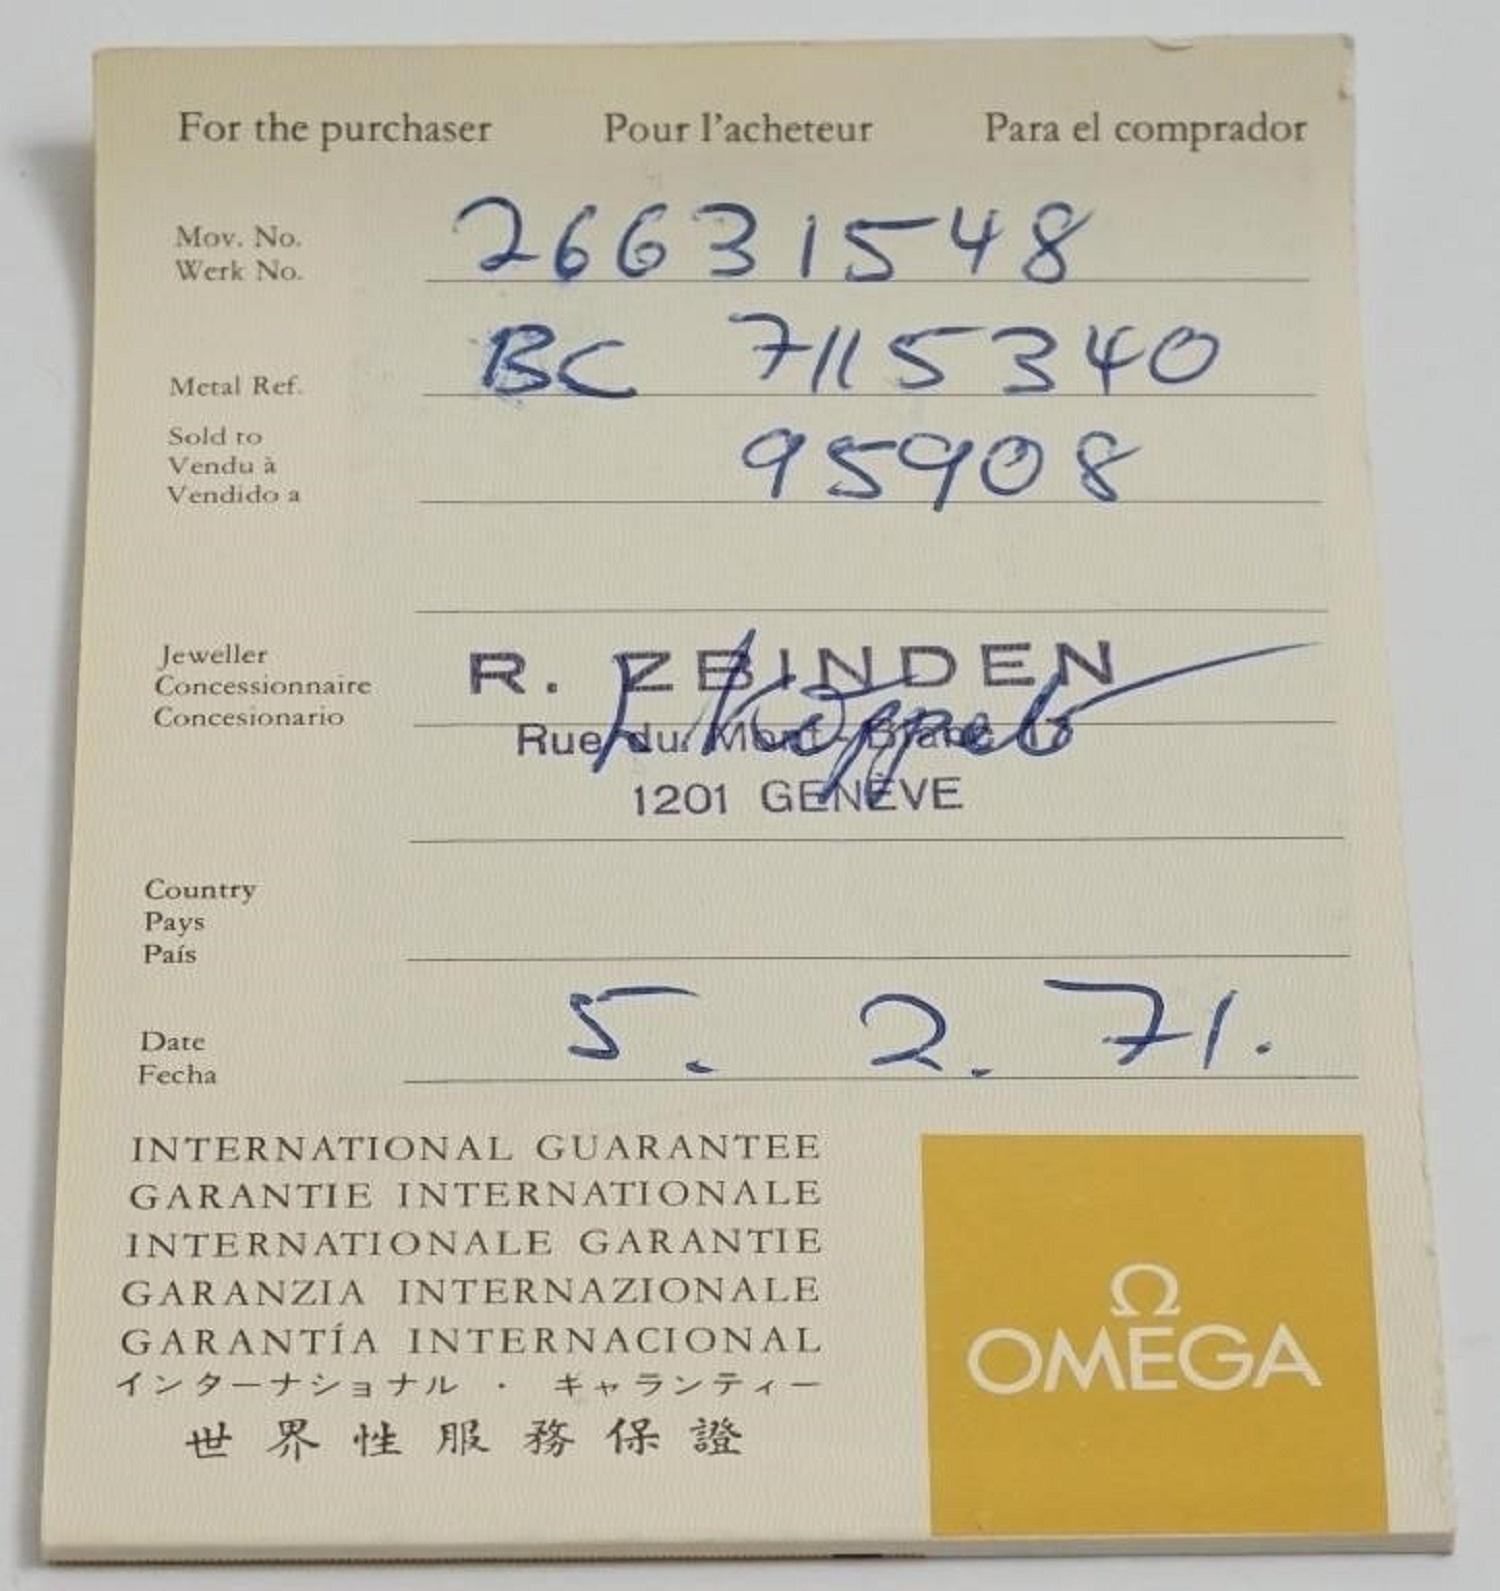 For the purchaser Pour l'acheteur Para el comprador
Mov. No.
Werk No.
26631548
Metal Ref.
BC 7115340
Sold to
Vendu à
Vendido a
95908
Jeweller
Concessionnaire
Concesionario
R. ZBINDEN
Rue du Mont-Blanc
1201 GENÈVE
Country
Pays
País
Date
Fecha
5. 2. 71.
INTERNATIONAL GUARANTEE
GARANTIE INTERNATIONALE
INTERNATIONALE GARANTIE
GARANZIA INTERNAZIONALE
GARANTÍA INTERNACIONAL
インターナショナル・ギャランティー
世界性服務保證
Ω
OMEGA